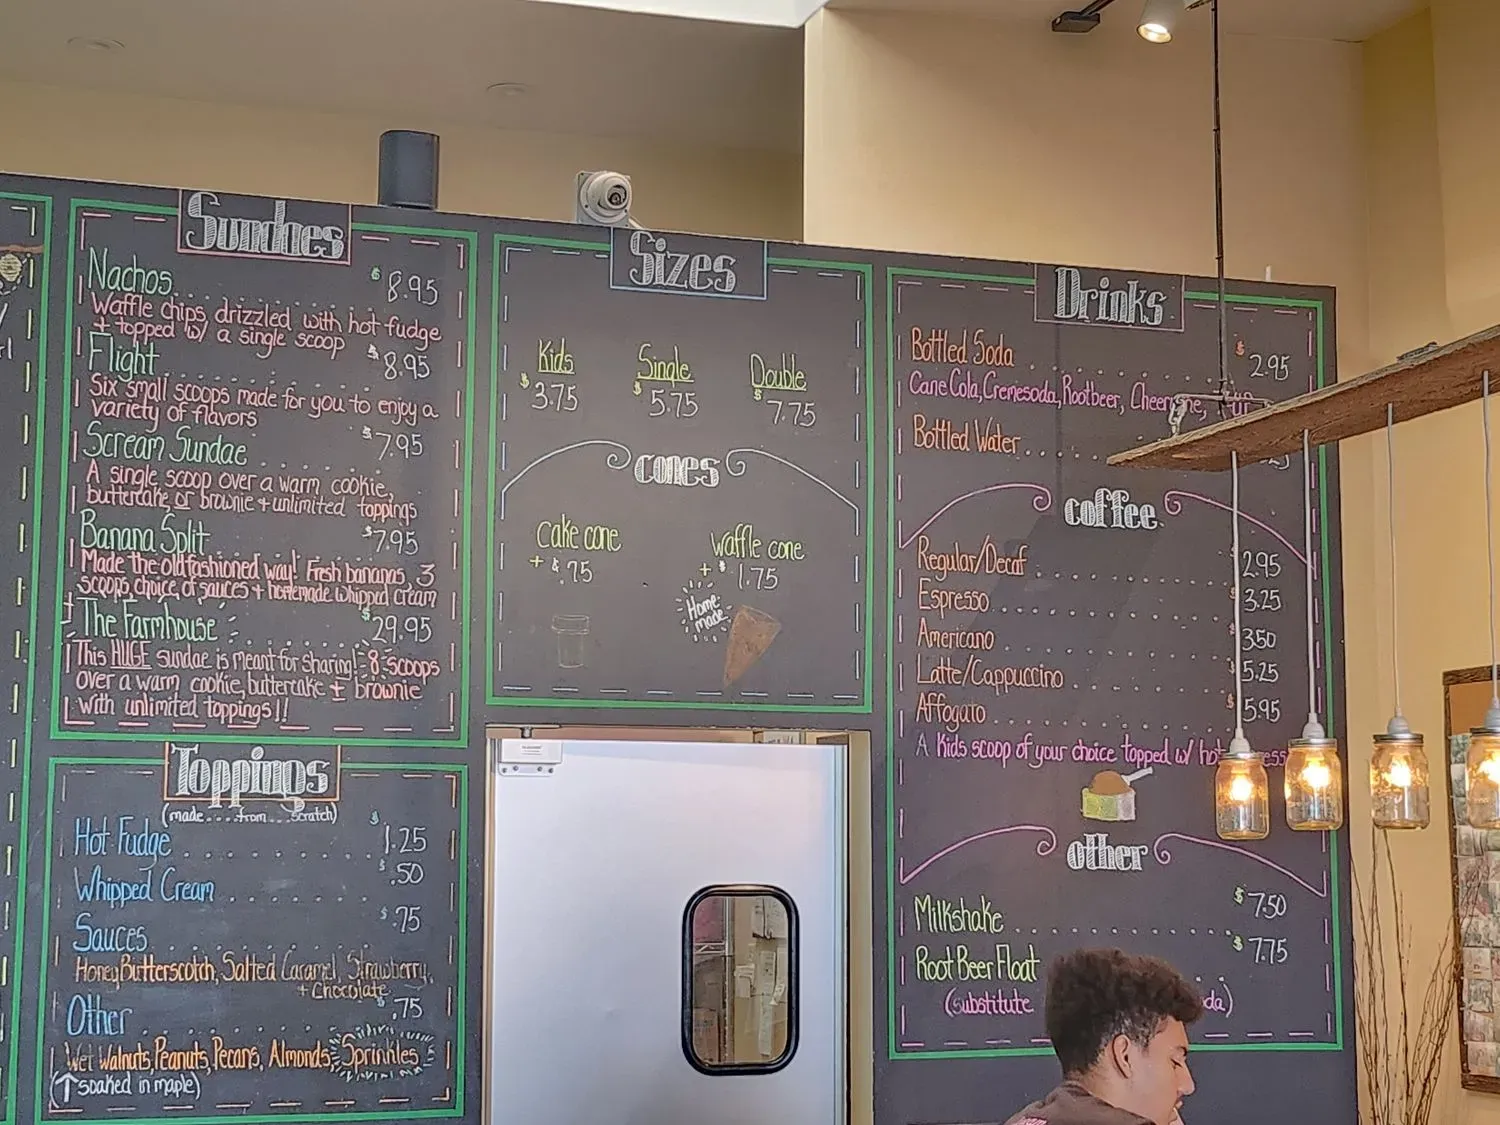 Sundaes
Nachos $8.95
Waffle chips drizzled with hot fudge
+ topped w/ a single scoop
Flight $8.95
Six small scoops made for you to enjoy a
variety of flavors
Scream Sundae $7.95
A single scoop over a warm cookie,
buttercake or brownie + unlimited toppings
Banana Split $7.95
Made the old fashioned way! Fresh bananas, 3
scoops, choice of sauces + homemade whipped cream
The Farmhouse $29.95
This HUGE sundae is meant for sharing! 8 scoops
over a warm cookie, buttercake + brownie
with unlimited toppings!!
Toppings
(made from scratch)
Hot Fudge $1.25
Whipped Cream .50
Sauces $.75
Honey, Butterscotch, Salted Caramel, Strawberry,
+ Chocolate
Other $.75
Wet Walnuts, Peanuts, Pecans, Almonds, Sprinkles
(↑ soaked in maple)
Sizes
Kids Single Double
$3.75 $5.75 $7.75
cones
cake cone waffle cone
+ $.75 + $1.75
Home
made
Drinks
Bottled Soda $2.95
Cane Cola, Cremesoda, Rootbeer,
Bottled Water
coffee
Regular/Decaf 2.95
Espresso $3.25
Americano $3.50
Latte/Cappuccino $5.25
Affogato $5.95
A Kids scoop of your choice topped w/
other
Milkshake $7.50
Root Beer Float $7.75
(substitute